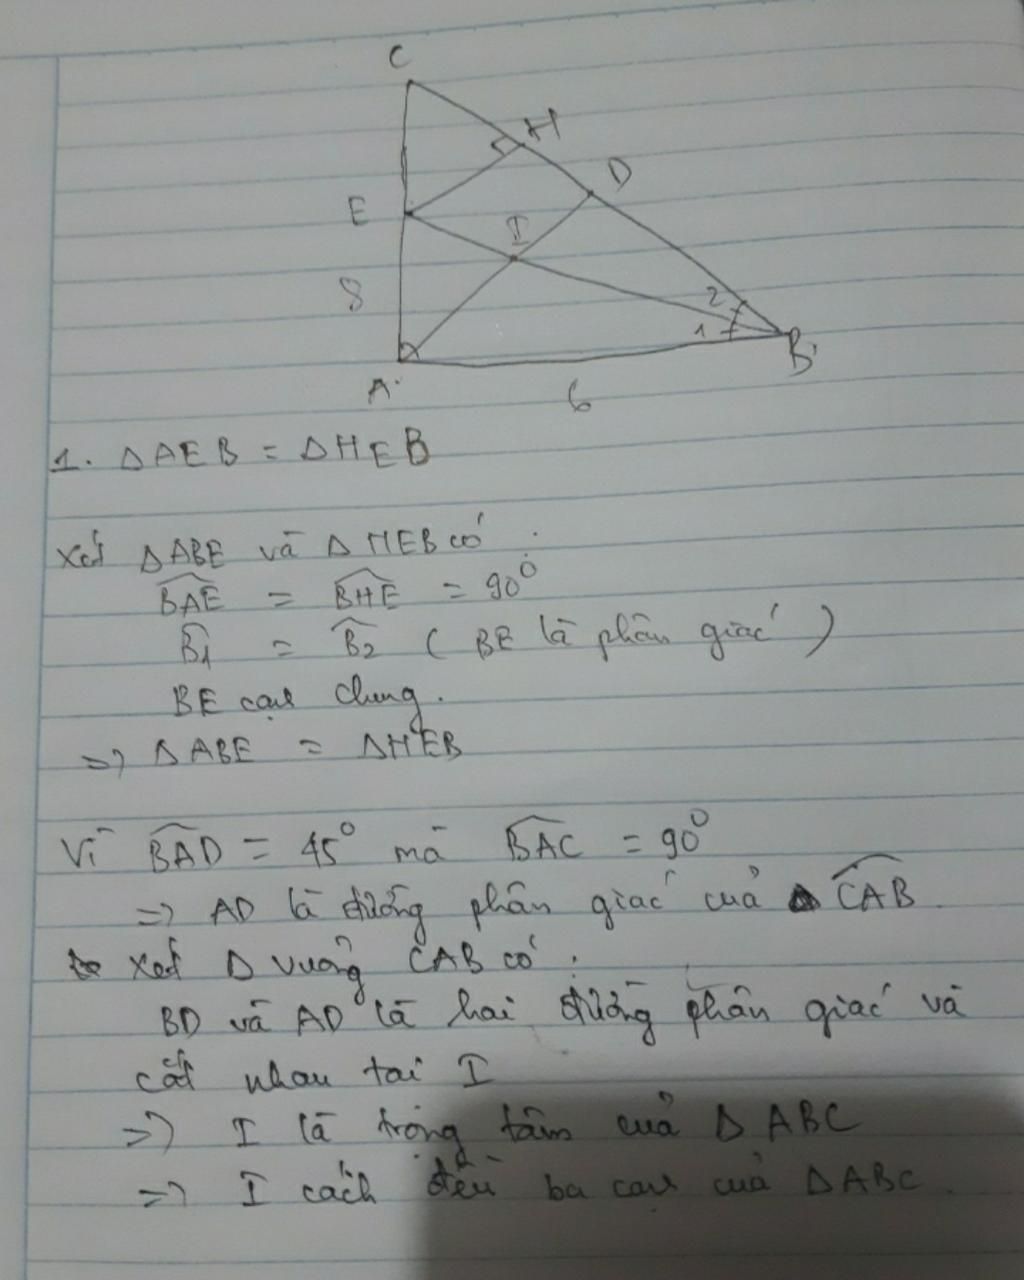 C
H
D
E
I
8
2
1
B
A
6
1. ΔAEB = ΔHEB
Xét ΔABE và ΔHEB có :
BAE = BHE = 90⁰
B1 = B2 ( BE là phân giác )
BE cạnh chung.
=> ΔABE = ΔHEB
Vì BAD = 45⁰ mà BAC = 90⁰
=> AD là đường phân giác của CAB.
Xét Δ vuông CAB có :
BD và AD là hai đường phân giác và
cắt nhau tại I
=> I là trọng tâm của ΔABC
=> I cách đều ba cạnh của ΔABC.